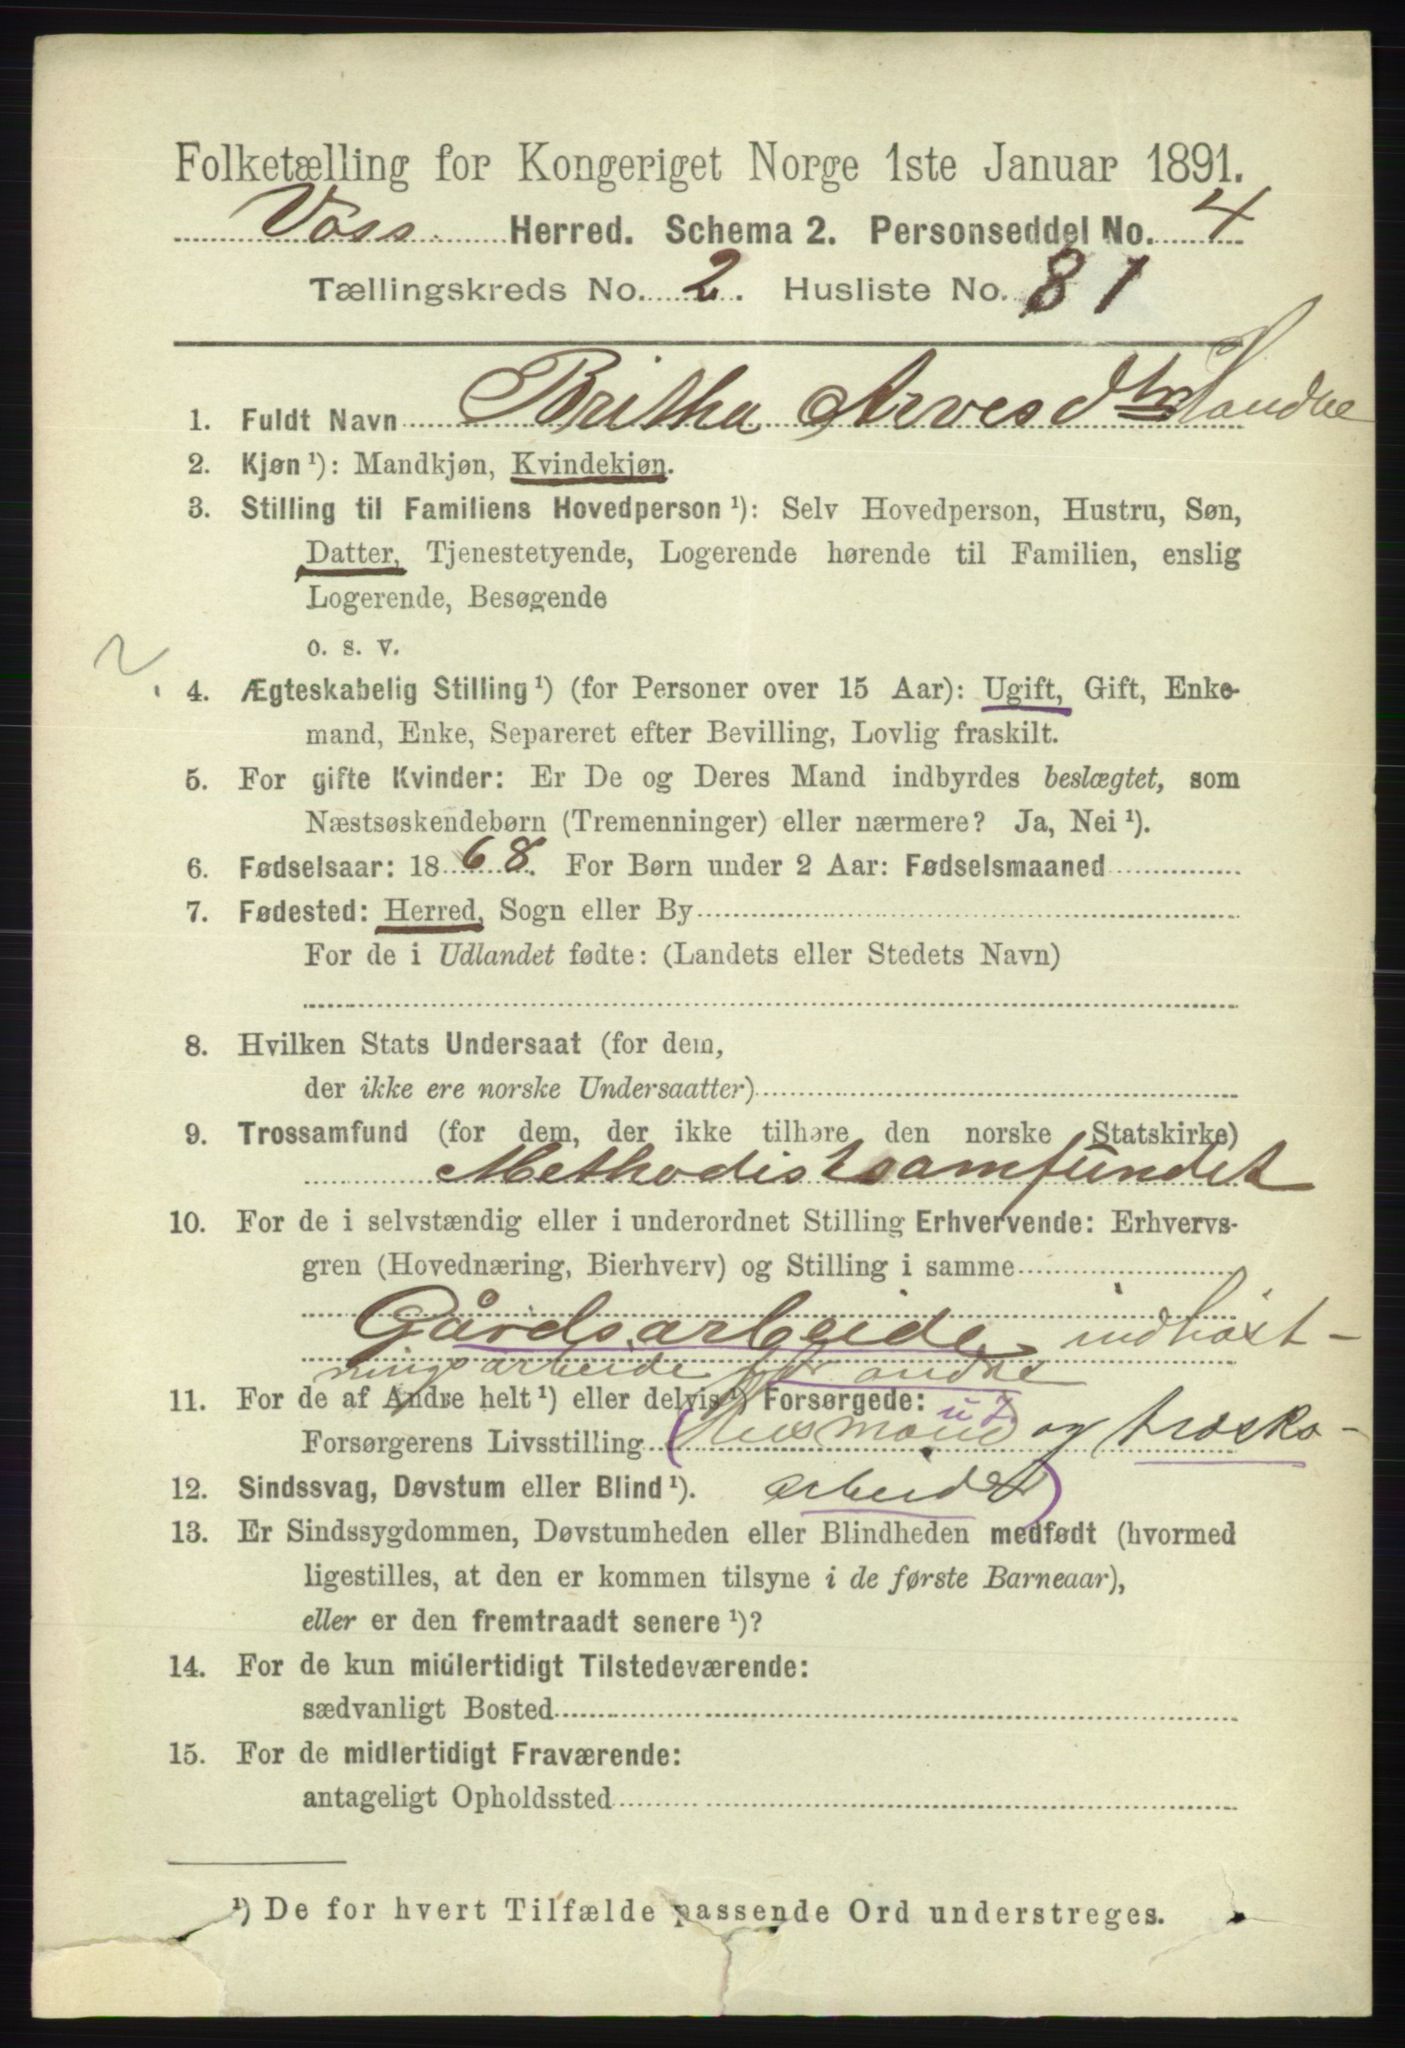 Folketælling for Kongeriget Norge 1ste Januar 1891.
Voss. Herred. Schema 2. Personseddel No. 4
Tællingskreds No. 2. Husliste No. 81
1. Fuldt Navn Britha Arvesdtr Sandne
2. Kjøn ¹): Mandkjøn, Kvindekjøn.
3. Stilling til Familiens Hovedperson ¹): Selv Hovedperson, Hustru, Søn,
Datter, Tjenestetyende, Logerende hørende til Familien, enslig
Logerende, Besøgende
o. s. v.
2
4. Ægteskabelig Stilling ¹) (for Personer over 15 Aar): Ugift, Gift, Enke-
mand, Enke, Separeret efter Bevilling, Lovlig fraskilt.
5. For gifte Kvinder: Er De og Deres Mand indbyrdes beslægtet, som
Næstsøskendebørn (Tremenninger) eller nærmere? Ja, Nei ¹).
6. Fødselsaar: 1868. For Børn under 2 Aar: Fødselsmaaned
7. Fødested: Herred, Sogn eller By
For de i Udlandet fødte: (Landets eller Stedets Navn)
8. Hvilken Stats Undersaat (for dem,
der ikke ere norske Undersaatter)
9. Trossamfund (for dem, der ikke tilhøre den norske Statskirke)
Methodistsamfundet
10. For de i selvstændig eller i underordnet Stilling Erhvervende: Erhvervs-
gren (Hovednæring, Bierhverv) og Stilling i samme
Gårdsarbeide, indhøst-
ningsarbeide for andre
11. For de af Andre helt ¹) eller delvis ¹) Forsørgede:
Forsørgerens Livsstilling (Husmand og træsko-
12. Sindssvag, Døvstum eller Blind ¹). arbeider)
13. Er Sindssygdommen, Døvstumheden eller Blindheden medfødt (hvormed
ligestilles, at den er kommen tilsyne i de første Barneaar),
eller er den fremtraadt senere ¹)?
14. For de kun midlertidigt Tilstedeværende:
sædvanligt Bosted
15. For de midlertidigt Fraværende:
antageligt Opholdssted
¹) De for hvert Tilfælde passende Ord understreges.